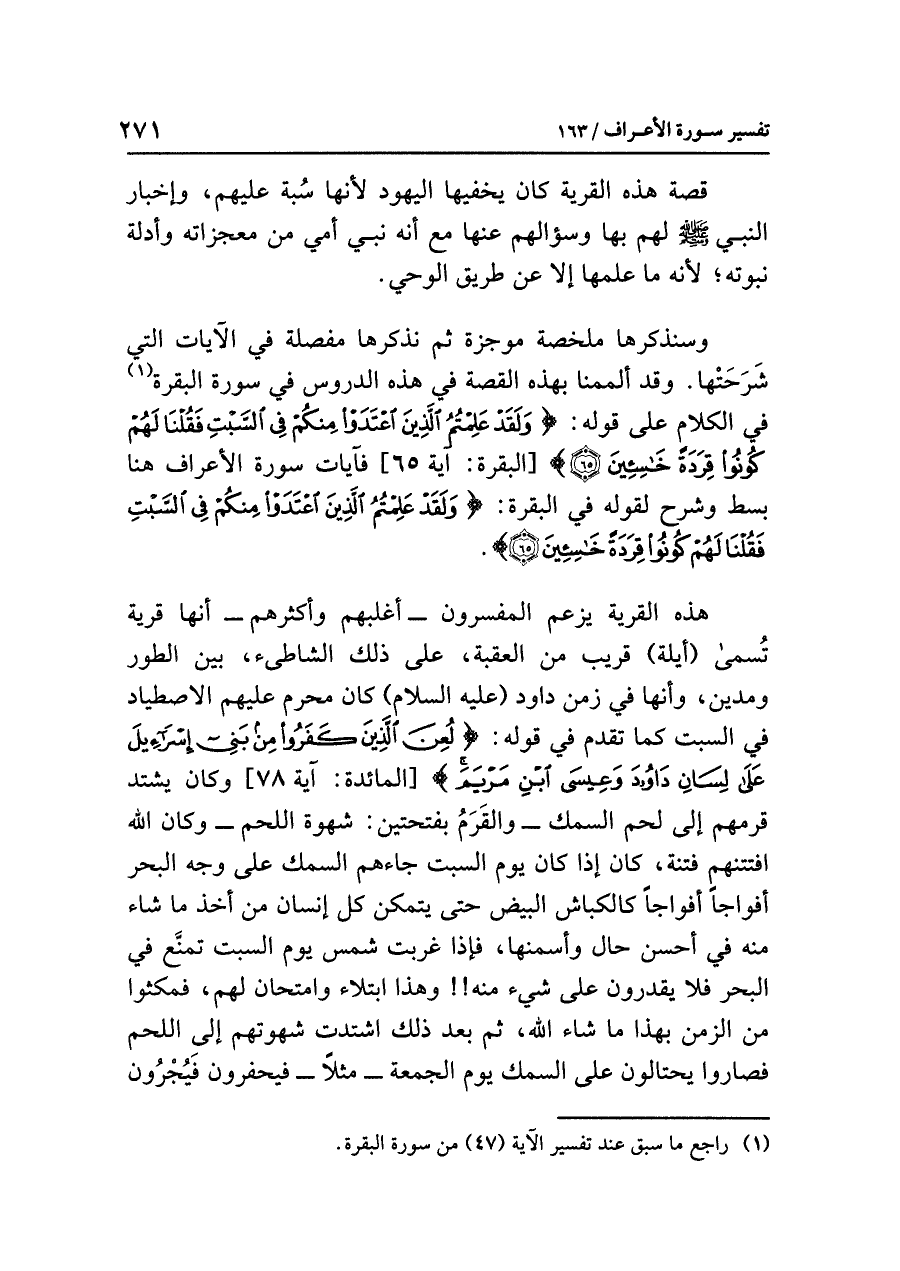 تفسير سورة الأعراف / ١٦٣
٢٧١
قصة هذه القرية كان يخفيها اليهود لأنها سُبة عليهم، وإخبار
النبي ﷺ لهم بها وسؤالهم عنها مع أنه نبي أمي من معجزاته وأدلة
نبوته؛ لأنه ما علمها إلا عن طريق الوحي.
وسنذكرها ملخصة موجزة ثم نذكرها مفصلة في الآيات التي
شَرَحَتْها. وقد ألممنا بهذه القصة في هذه الدروس في سورة البقرة(١)
في الكلام على قوله: ﴿ وَلَقَدْ عَلِمْتُمُ ٱلَّذِينَ ٱعْتَدَوْا۟ مِنكُمْ فِى ٱلسَّبْتِ فَقُلْنَا لَهُمْ
كُونُوا۟ قِرَدَةً خَٰسِـِٔينَ ٦٥﴾ [البقرة: آية ٦٥] فآيات سورة الأعراف هنا
بسط وشرح لقوله في البقرة: ﴿ وَلَقَدْ عَلِمْتُمُ ٱلَّذِينَ ٱعْتَدَوْا۟ مِنكُمْ فِى ٱلسَّبْتِ
فَقُلْنَا لَهُمْ كُونُوا۟ قِرَدَةً خَٰسِـِٔينَ ٦٥﴾.
هذه القرية يزعم المفسرون ــ أغلبهم وأكثرهم ــ أنها قرية
تُسمىٰ (أيلة) قريب من العقبة، على ذلك الشاطىء، بين الطور
ومدين، وأنها في زمن داود (عليه السلام) كان محرم عليهم الاصطياد
في السبت كما تقدم في قوله: ﴿ لُعِنَ ٱلَّذِينَ كَفَرُوا۟ مِنۢ بَنِىٓ إِسْرَٰٓءِيلَ
عَلَىٰ لِسَانِ دَاوُۥدَ وَعِيسَى ٱبْنِ مَرْيَمَ ۚ ﴾ [المائدة: آية ٧٨] وكان يشتد
قرمهم إلى لحم السمك ــ والقَرَمُ بفتحتين: شهوة اللحم ــ وكان الله
افتتنهم فتنة، كان إذا كان يوم السبت جاءهم السمك على وجه البحر
أفواجاً أفواجاً كالكباش البيض حتى يتمكن كل إنسان من أخذ ما شاء
منه في أحسن حال وأسمنها، فإذا غربت شمس يوم السبت تمنَّع في
البحر فلا يقدرون على شيء منه!! وهذا ابتلاء وامتحان لهم، فمكثوا
من الزمن بهذا ما شاء الله، ثم بعد ذلك اشتدت شهوتهم إلى اللحم
فصاروا يحتالون على السمك يوم الجمعة ــ مثلاً ــ فيحفرون فَيُجْرُون
(١) راجع ما سبق عند تفسير الآية (٤٧) من سورة البقرة.